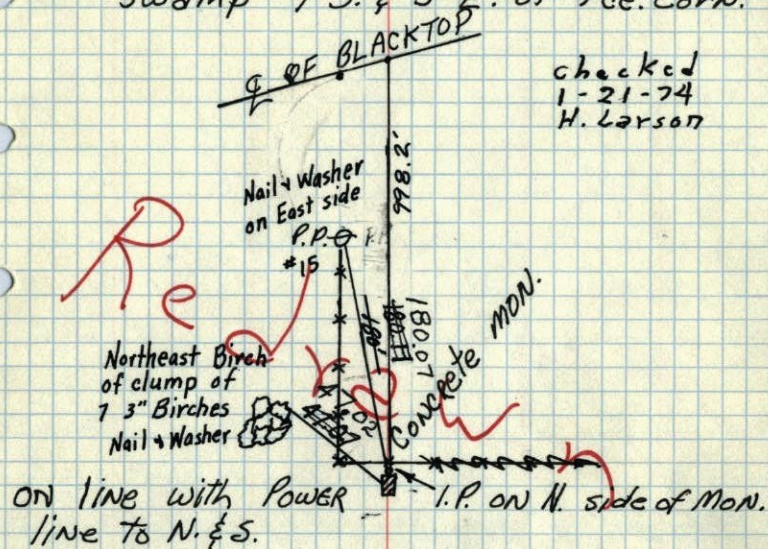 ℄ OF BLACKTOP
checked
1-21-74
H. Larson
998.2'
Nail & Washer
on East side
P.P.
#15
Redrawn
180.07
CONCRETE MON.
Northeast Birch
of clump of
7 3" Birches
Nail & Washer
ON line with POWER
line to N. & S.
I.P. ON N. side of MON.